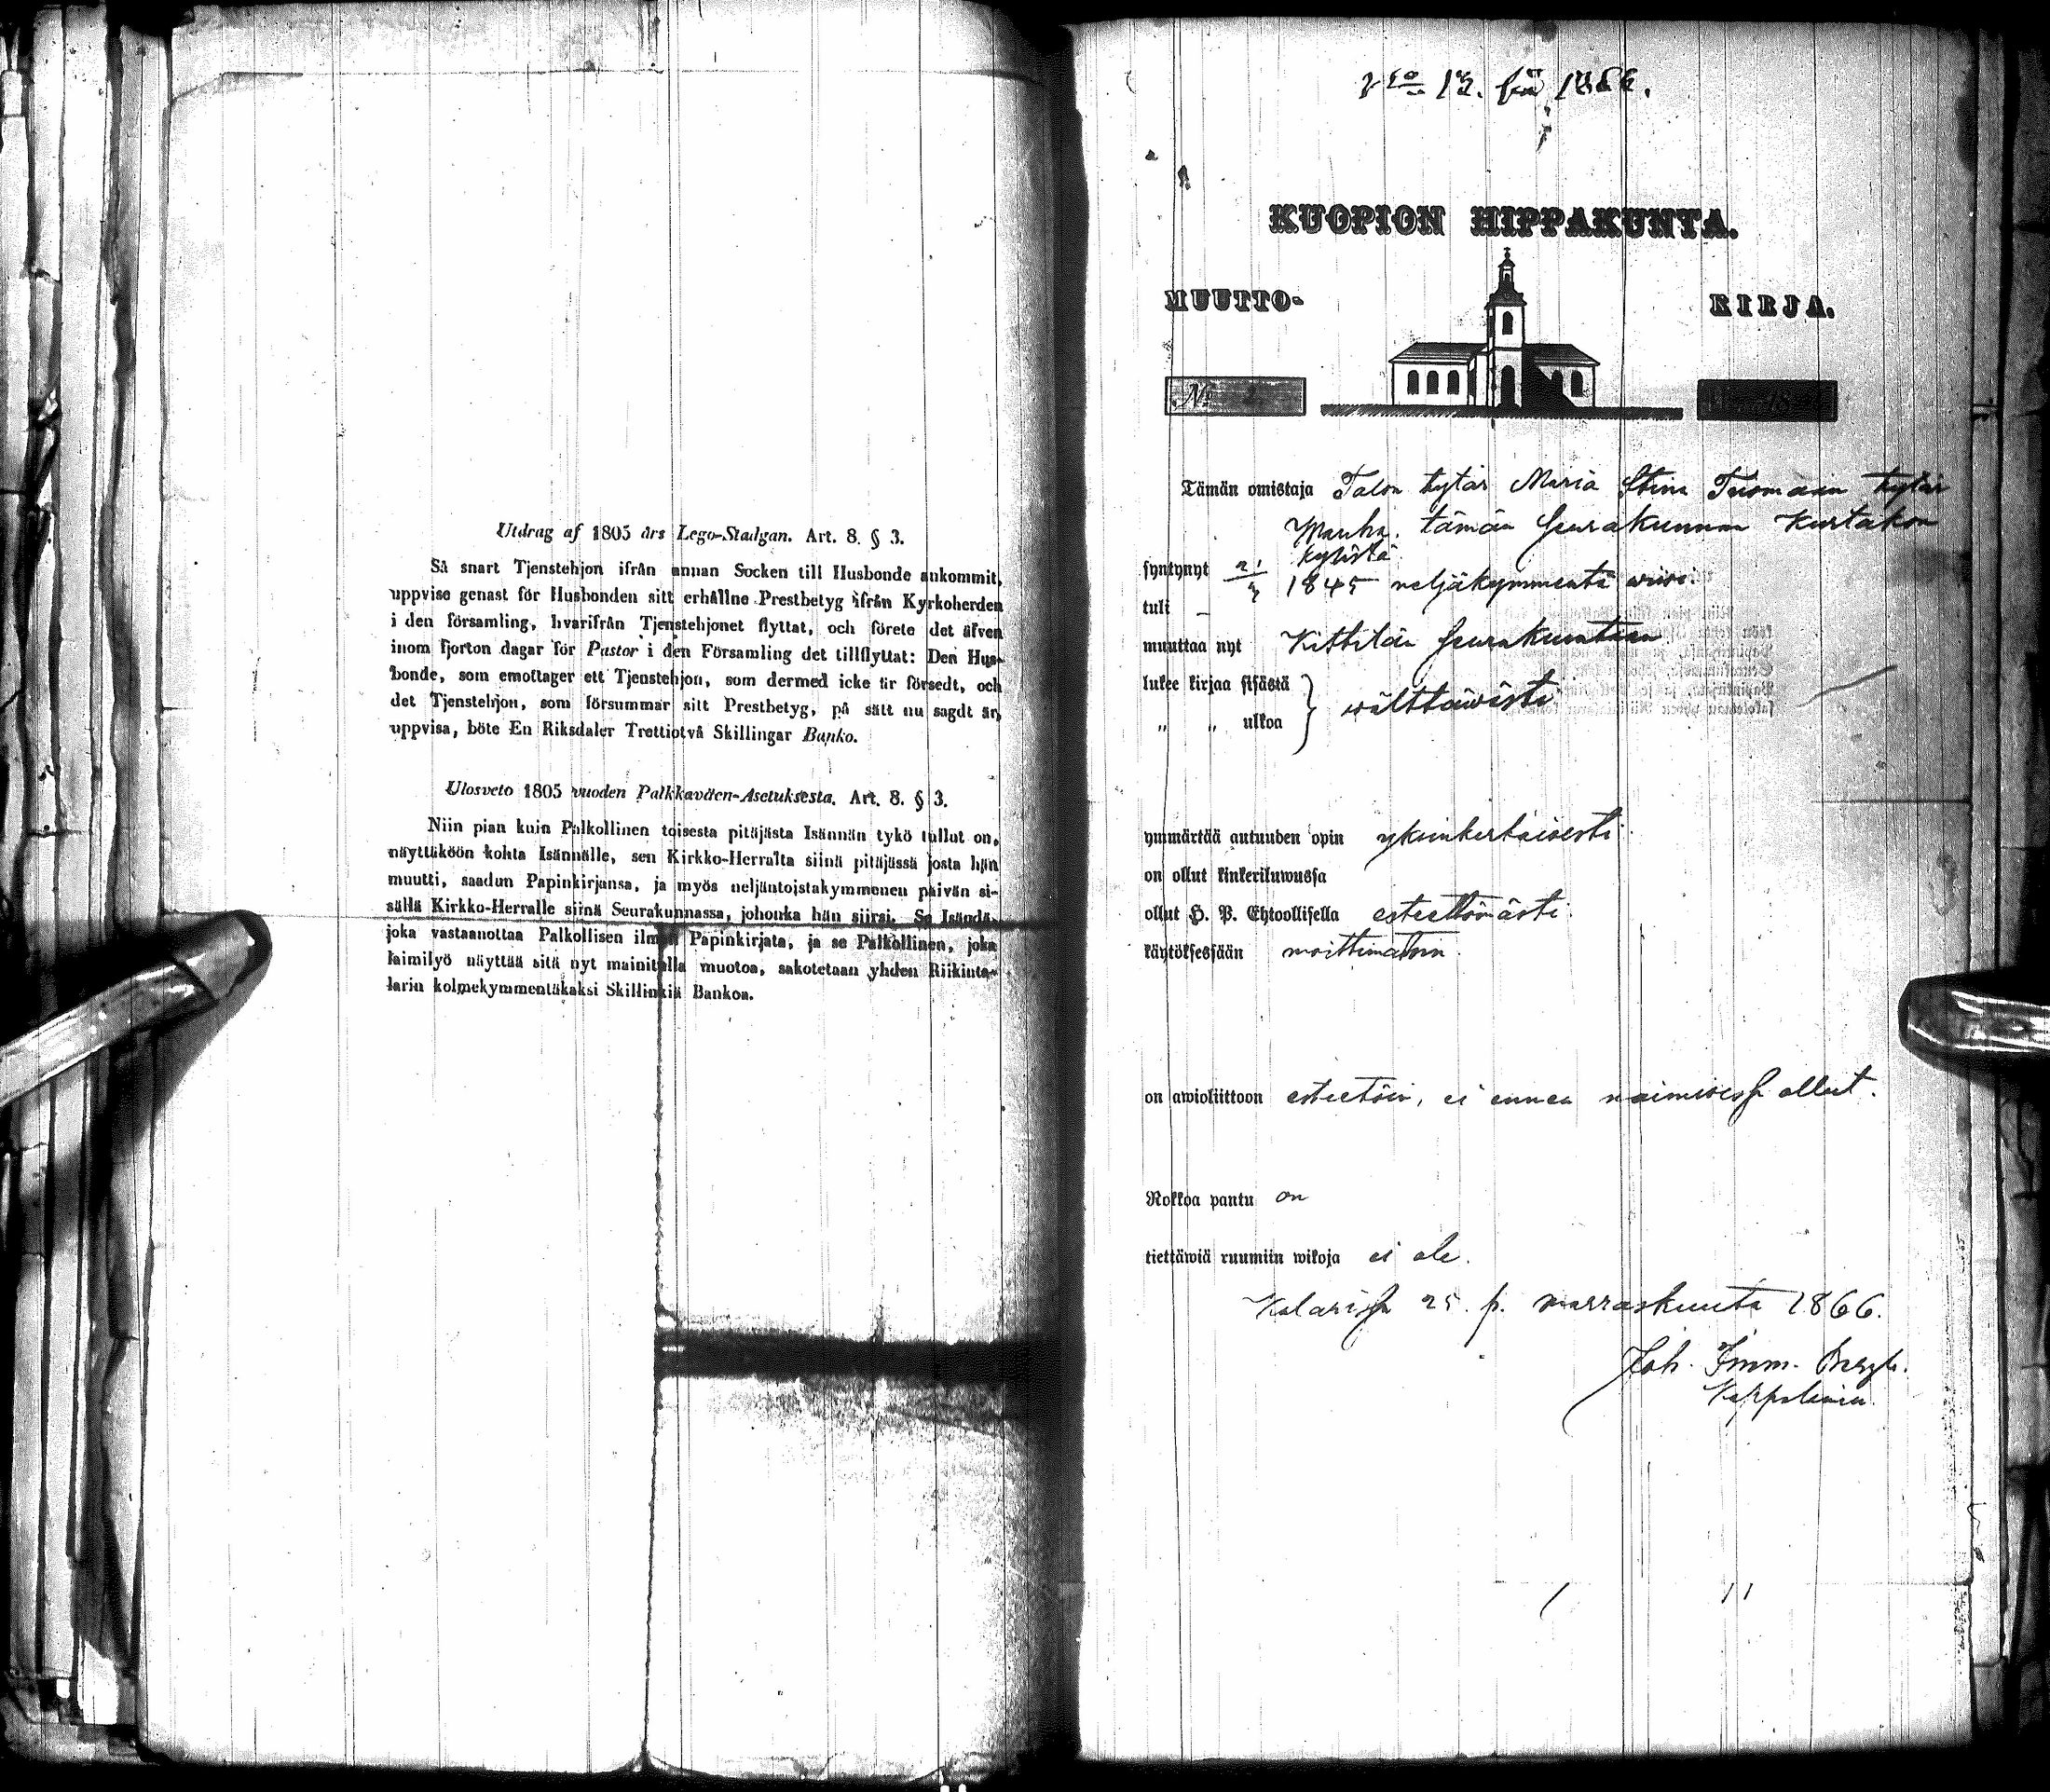 Utdrag af 1805 års Lego-Stadgan. Art. 8. § 3.
Så snart Tjenstehjon ifrån annan Socken till Husbonde ankommit,
uppvise genast för Husbonden sitt erhållne Prestbetyg ifrån Kyrkoherden
i den församling, hvarifrån Tjenstehjonet flyttat, och förete det äfven
inom fjorton dagar för Pastor i den Församling det tillflyttat: Den Hus-
bonde, som emottager ett Tjenstehjon, som dermed icke är försedt, och
det Tjenstehjon, som försummar sitt Prestbetyg, på sätt nu sagdt är,
uppvisa, böte En Riksdaler Trettiotvå Skillingar Banko.
Ulosveto 1805 vuoden Palkkaväen-Asetuksesta. Art. 8. § 3.
Niin pian kuin Palkollinen toisesta pitäjästa Isännän tykö tullut on,
näyttäköön kohta Isännälle, sen Kirkko-Herralta siinä pitäjässä josta hän
muutti, saadun Papinkirjansa, ja myös neljäntoistakymmenen päivän si-
sällä Kirkko-Herralle siinä Seurakunnassa, johonka hän siirsi. Se Isändä,
joka vastaanottaa Palkollisen ilman Papinkirjata, ja se Palkollinen, joka
laimilyö näyttää sitä nyt mainitulla muotoa, sakotetaan yhden Riikinta-
larin kolmekymmentäkaksi Skillinkiä Bankoa.
13. 1866.
KUOPION HIPPAKUNTA.
MUUTTO- KIRJA.
N:
Tämän omistaja Talon tytär Maria Stina Tuomaan tytär
tämän seurakunnan Kurtakon
kylästä
syntynyt 21 1845 neljäkymmentä wiisi.
tuli –
muuttaa nyt Kittilän seurakuntaan
lukee kirjaa sisästä
„ „ ulkoa } wälttäwästi
ymmärtää autuuden opin yksinkertaisesti
on ollut kinkeriluwussa
ollut H. P. Ehtoollisella esteettömästi.
käytöksessään moittimatoin.
on awioliittoon esteetöin, ei ennen naimisessa ollut.
Rokkoa pantu on
tiettäwiä ruumiin wikoja ei ole.
Kolarissa 25. p. marraskuuta 1866.
Joh. Imm. Bergh.
Kappalainen.